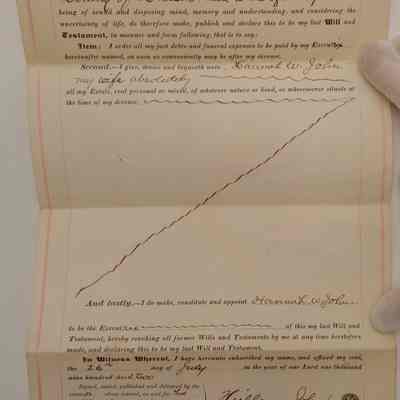 being of sound and disposing mind, memory and understanding, and considering the
uncertainty of life, do therefore make, publish and declare this to be my last Will and
Testament, in manner and form following, that is to say:
Item: I order all my just debts and funeral expenses to be paid by my Execut
hereinafter named, as soon as conveniently may be after my decease.
Second.—I give, devise and bequeath unto Hannah W. John
my wife absolutely
all my Estate, real personal or mixed, of whatever nature or kind, or wheresoever situate at
the time of my decease.
And lastly.—I do make, constitute and appoint Hannah W John
to be the Execut of this my last Will and
Testament, hereby revoking all former Wills and Testaments by me at any time heretofore
made, and declaring this to be my last Will and Testament.
In Witness Whereof, I have hereunto subscribed my name, and affixed my seal,
the 26th day of July in the year of our Lord one thousand
nine hundred and two
Signed, sealed, published and delivered by the